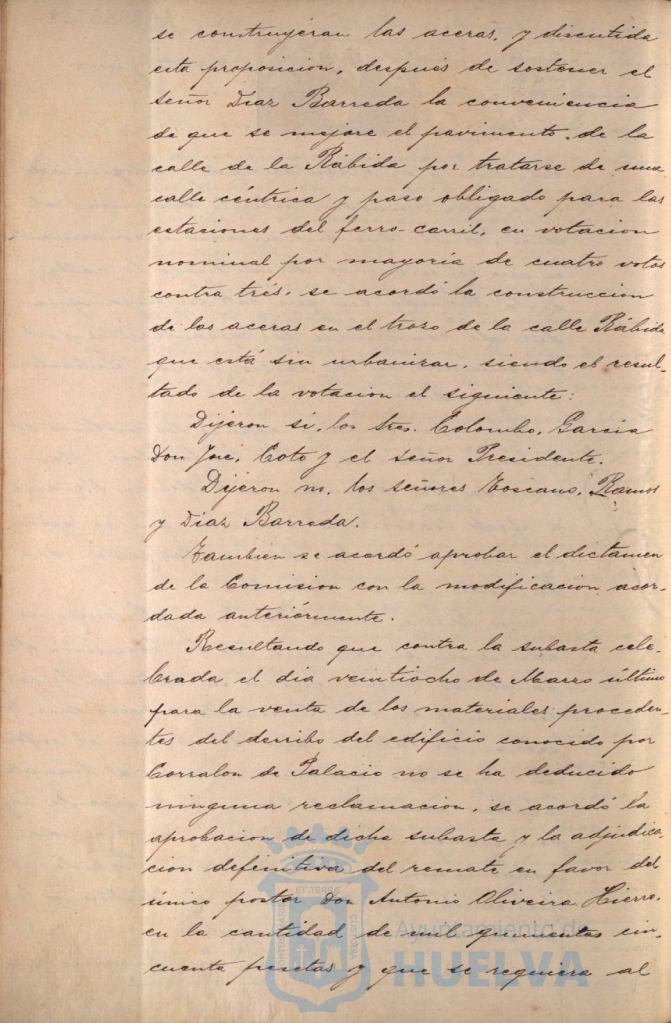 se construyeran las aceras, y discutida
esta proposicion, después de sostener el
señor Diaz Barreda la conveniencia
de que se mejore el pavimento de la
calle de la Rábida por tratarse de una
calle céntrica y paso obligado para las
estaciones del ferro-carril, en votacion
nominal por mayoría de cuatro votos
contra trés, se acordó la construccion
de las aceras en el trozo de la calle Rábida
que está sin urbanizar, siendo el resul-
tado de la votacion el siguiente:
Dijeron si, los Sres. Colombo, Garcia
Don José, Coto y el señor Presidente.
Dijeron no, los señores Toscano, Ramos
y Diaz Barreda.
Tambien se acordó aprobar el dictamen
de la Comision con la modificacion acor-
dada anteriórmente.
Resultando que contra la subasta cele-
brada el dia veintiocho de Marzo último
para la venta de los materiales proceden-
tes del derribo del edificio conocido por
Corralon de Palacio no se ha deducido
ninguna reclamacion, se acordó la
aprobacion de dicha subasta y la adjudica-
cion definitiva del remate en favor del
único postor Don Antonio Oliveira Hierro,
en la cantidad de mil quinientas cin-
cuenta pesetas y que se requiera al
Ayuntamiento de
HUELVA